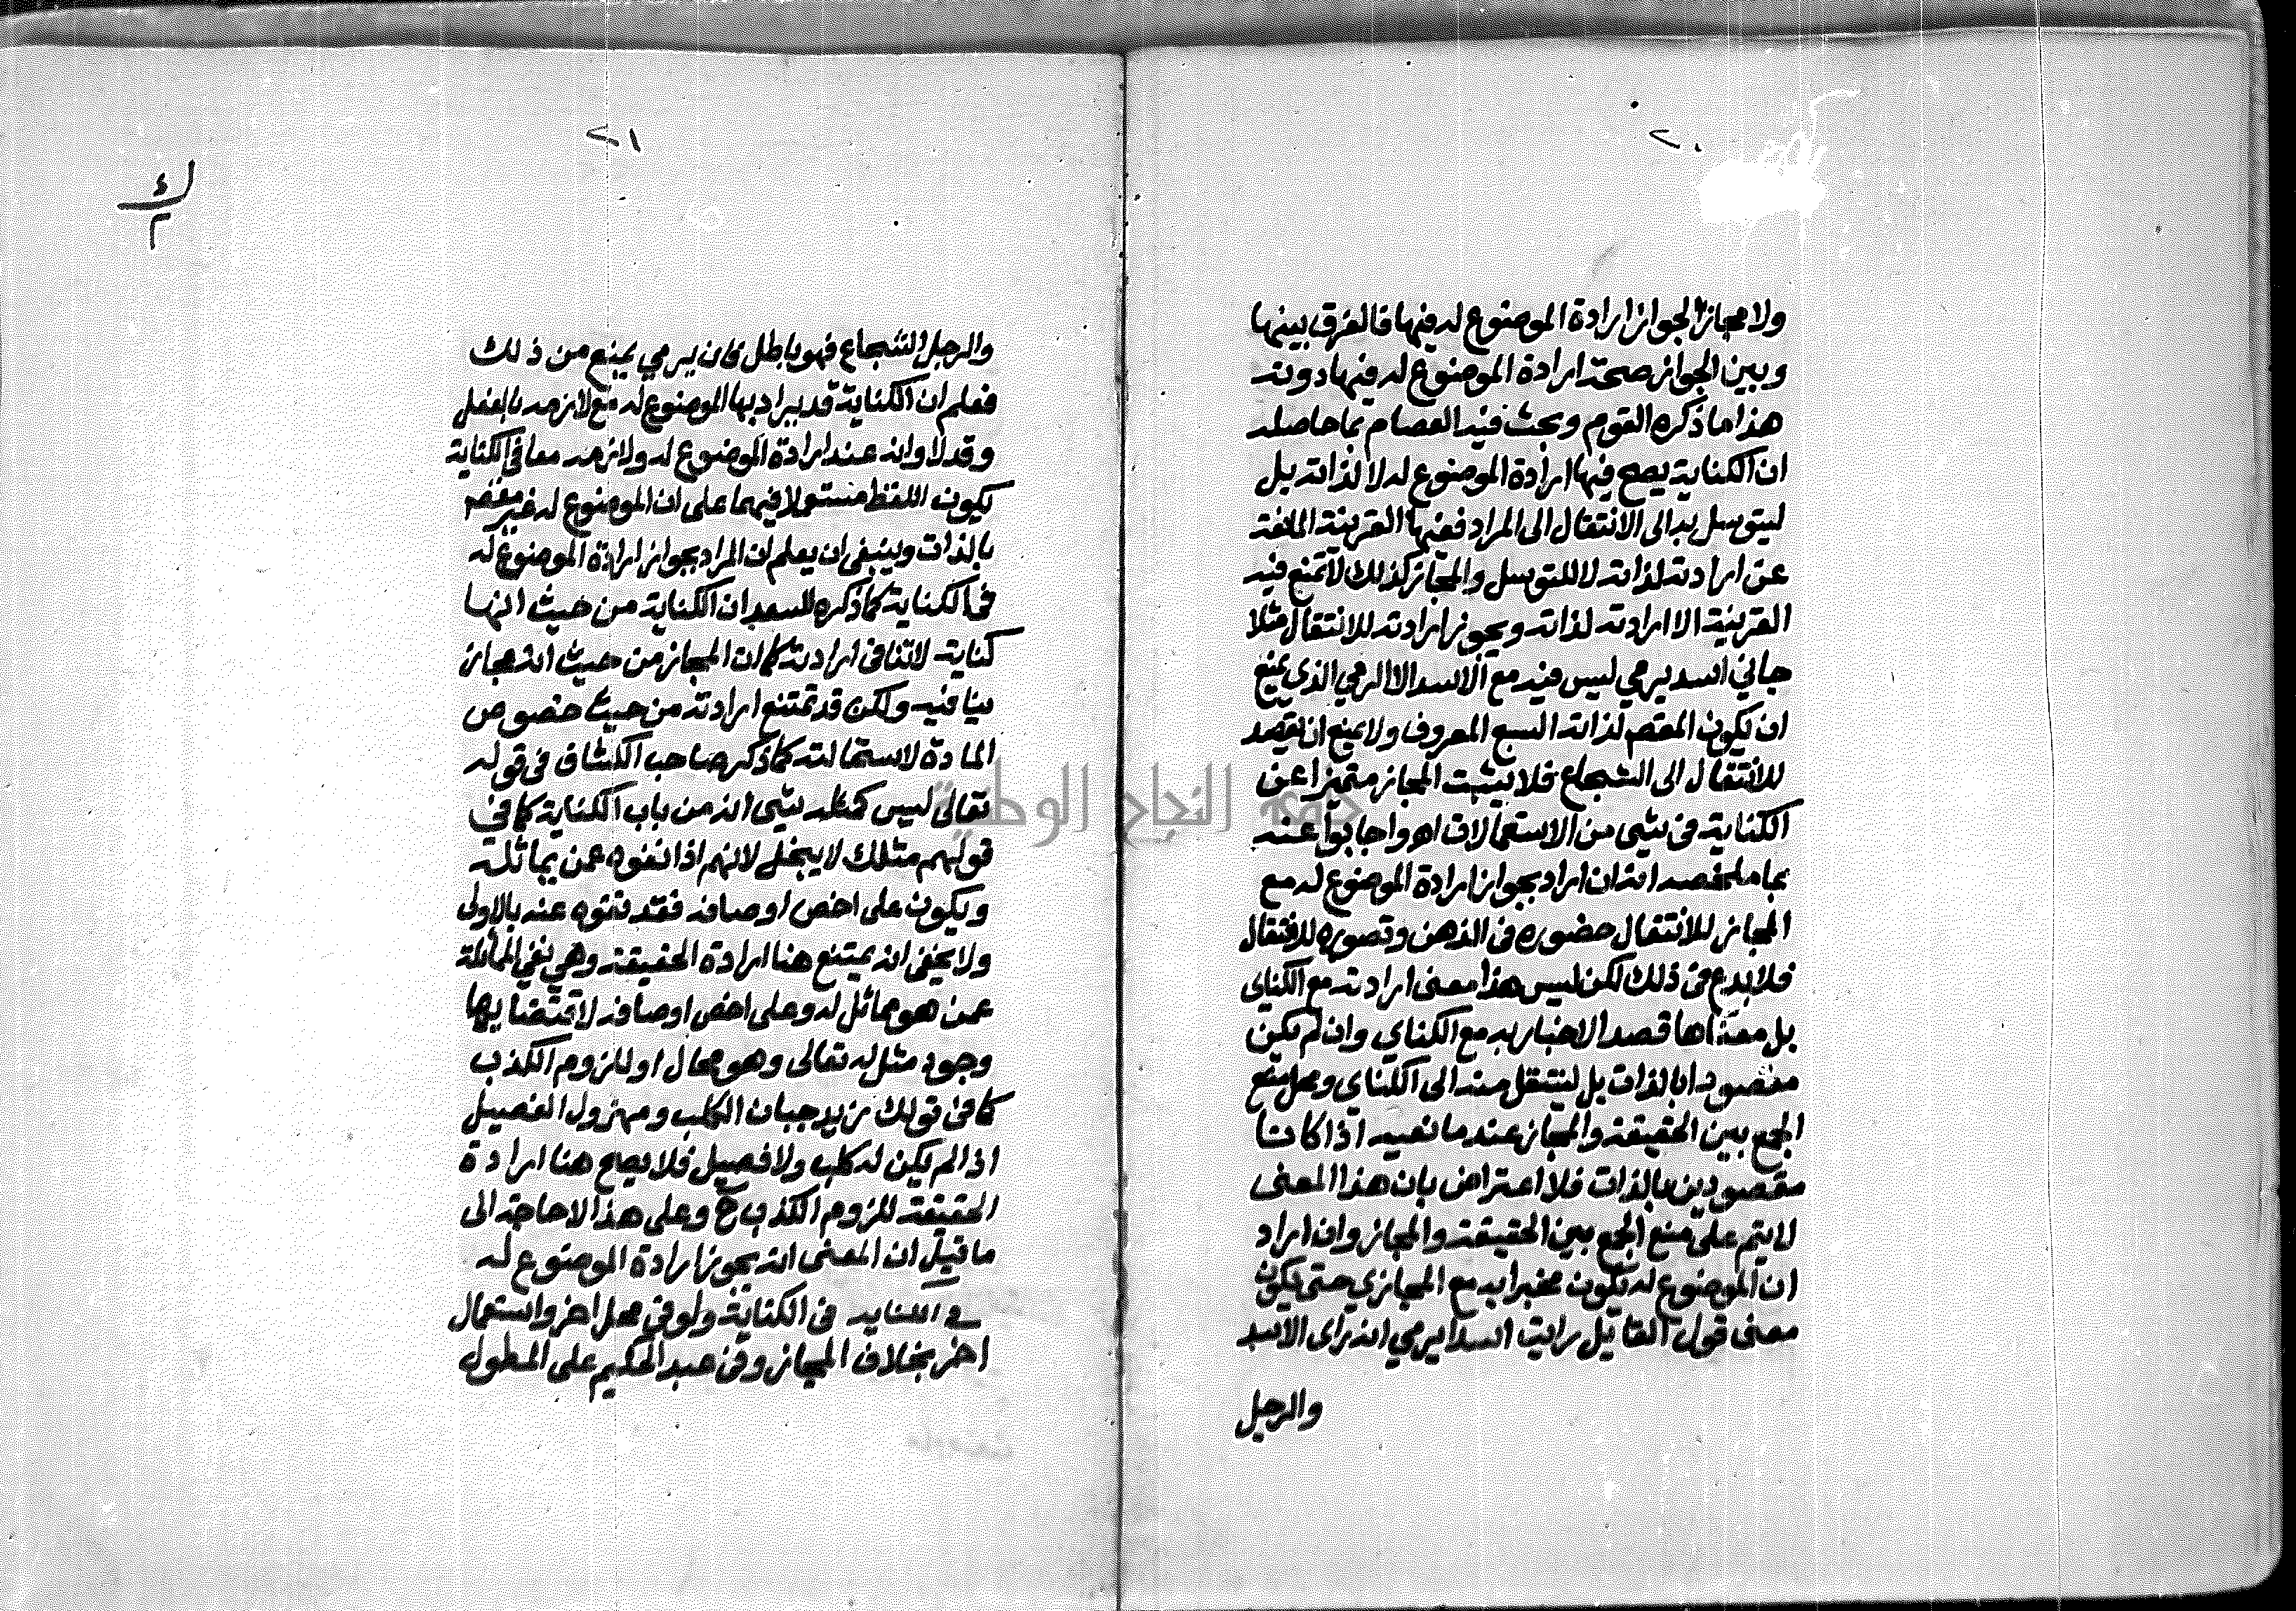 ٢٠
ولا مجازا لجواز ارادة الموضوع له فيها فالفرق بينها
وبين الجواز صحة ارادة الموضوع له فيها دونه
هذا ما ذكره القوم وبحث فيه العصام بما حاصله
ان الكناية يصح فيها ارادة الموضوع له لا لذاته بل
ليتوسل به الى الانتقال الى المراد ففيها القرينة المانعة
عن ارادته لذاته لا للتوسل والمجاز كذلك لا تمنع فيه
القرينة الا ارادته لذاته ويجوز ارادته للانتقال مثلا
جاني اسد يرمي ليس فيه مع الاسد الا الرمي الذي يمنع
ان يكون المقصم لذاته السبع المعروف ولا يمنع ان يقصد
للانتقال الى الشجاع فلا يثبت المجاز متميزا عن
الكناية في شي من الاستعمالات اهـ واجابوا عنه
بما ملخصه انه ان اراد بجواز ارادة الموضوع له مع
المجاز للانتقال حضوره في الذهن وتصوره للانتقال
فلا بدع في ذلك لكن ليس هذا معنى ارادته مع الكناي
بل معناها قصد الاخبار به مع الكناي وان لم يكن
مقصودا بالذات بل لينتقل منه الى الكناي ومحل منع
الجمع بين الحقيقة والمجاز عند مانعيه اذا كانا
مقصودين بالذات فلا اعتراض بان هذا المعنى
لا يتم على منع الجمع بين الحقيقة والمجاز وان اراد
ان الموضوع له يكون مخبرا به مع المجازي حتى يكون
معنى قول القائل رايت اسدا يرمي انه راى الاسد
والرجل
٢١
ك
٤
٢
والرجل الشجاع فهو باطل فان يرمي يمنع من ذلك
فعلم ان الكناية قد يراد بها الموضوع له مع لازمه بالفعل
وقد لا وانه عند ارادة الموضوع له ولازمه معا في الكناية
يكون اللفظ مستعملا فيهما على ان الموضوع له غير مقصم
بالذات وينبغي ان يعلم ان المراد بجواز ارادة الموضوع له
في الكناية كما ذكره السعد ان الكناية من حيث انها
كناية لا تنافي ارادته كما ان المجاز من حيث انه مجاز
ينافيه ولكن قد تمتنع ارادته من حيث خصوص
المادة لاستحالته كما ذكر صاحب الكشاف في قوله
تعالى ليس كمثله شي انه من باب الكناية كما في
قولهم مثلك لا يبخل لانهم اذا نفوه عمن يماثله
ويكون على اخص اوصافه فقد نفوه عنه بالاولى
ولا يخفى انه يمتنع هنا ارادة الحقيقة وهي نفي المماثلة
عن هو مماثل له وعلى اخص اوصافه لاقتضايها
وجود مثل له تعالى وهو محال او للزوم الكذب
كما في قولك زيد جبان الكلب ومهزول الفصيل
اذا لم يكن له كلب ولا فصيل فلا يصح هنا ارادة
الحقيقة للزوم الكذب ح وعلى هذا لا حاجة الى
ما قيل ان المعنى انه يجوز ارادة الموضوع له
في الكنايه في الكناية ولو في محل اخر واستعمال
اخر بخلاف المجاز وفي عبد الحكيم على المطول
جامعة النجاح الوطنية